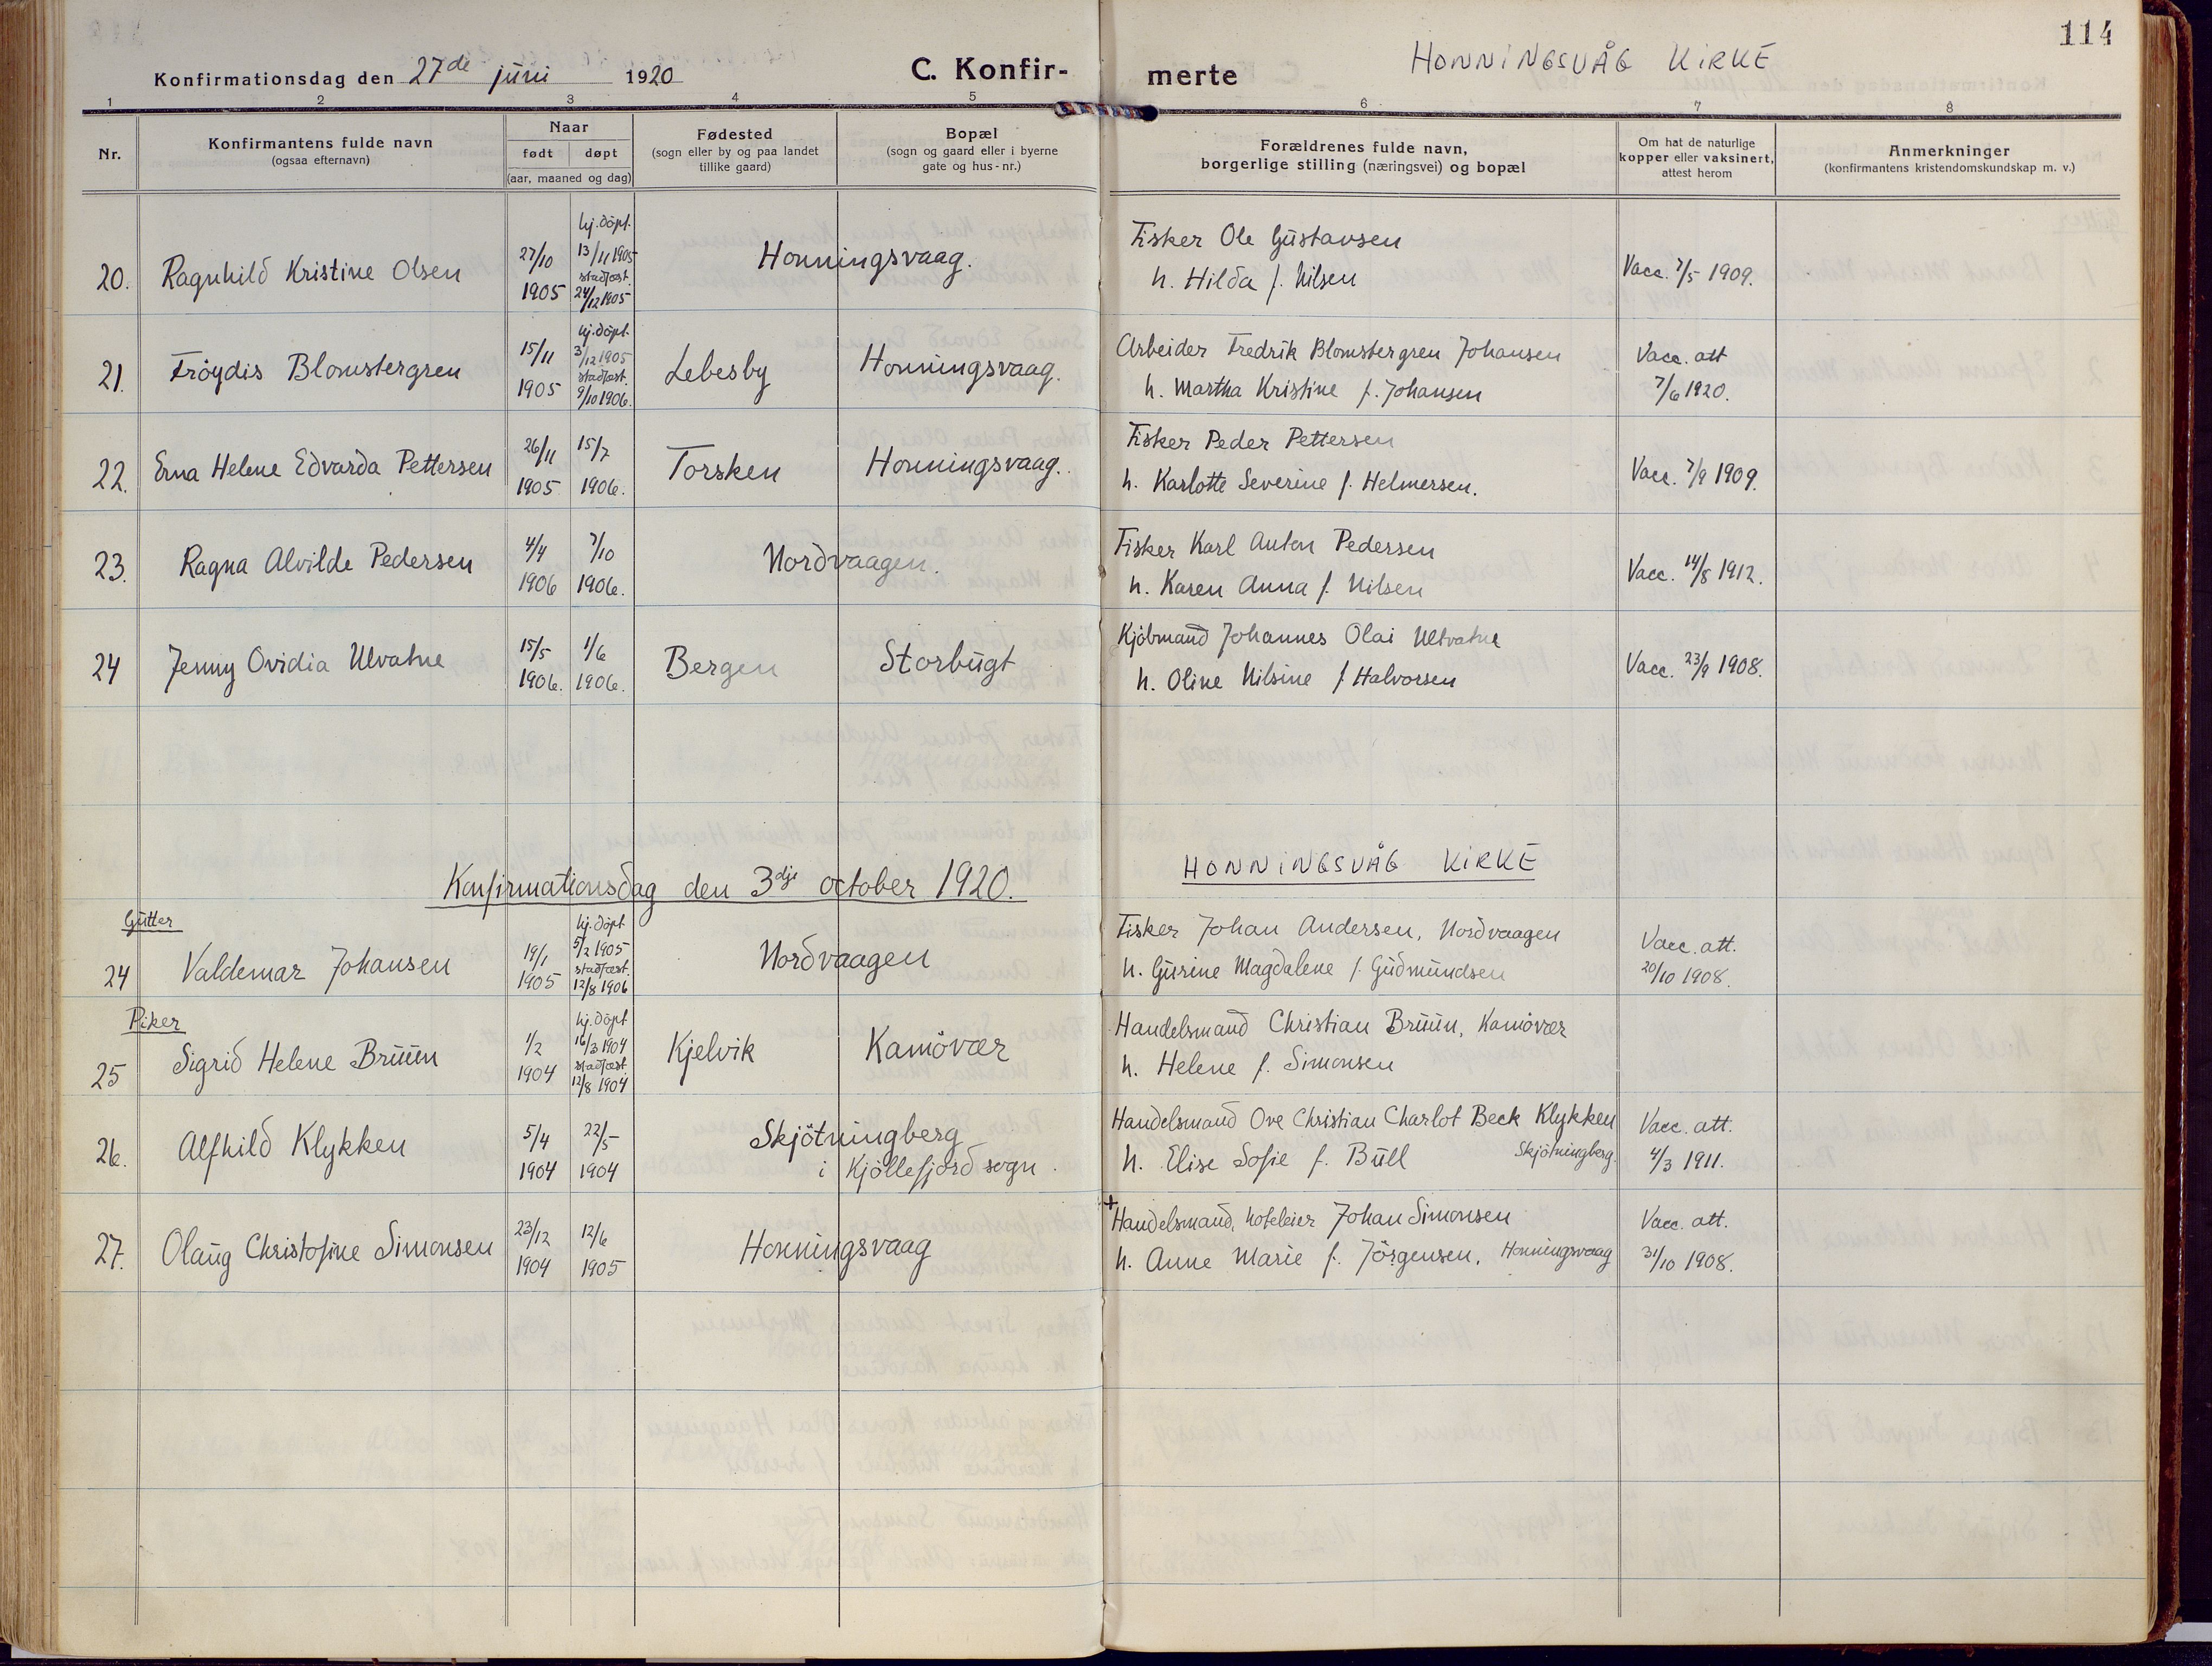 114
Konfirmationsdag den 27de juni 1920
C. Konfir-
merte
HONNINGSVÅG KIRKE
1 2 3 4 5 6 7 8
Nr.
Konfirmantens fulde navn
(ogsaa efternavn)
Naar
født døpt
(aar, maaned og dag)
Fødested
(sogn eller by og paa landet
tillike gaard)
Bopæl
(sogn og gaard eller i byerne
gate og hus-nr.)
Forældrenes fulde navn,
borgerlige stilling (næringsvei) og bopæl
Om hat de naturlige
kopper eller vaksinert,
attest herom
Anmerkninger
(konfirmantens kristendomskundskap m. v.)
20. Ragnhild Kristine Olsen
27/10
1905
hj.döpt.
13/11 1905
stadfæst.
24/12 1905
Honningsvaag.
Fisker Ole Gustavsen
h. Hilda f. Nilsen
Vacc. 7/5 1909.
21. Fröydis Blomstergren
15/11
1905
hj.döpt.
3/12 1905
stadfæst.
9/10 1906.
Lebesby
Honningsvaag.
Arbeider Fredrik Blomstergren Johansen
h. Martha Kristine f. Johansen
Vacc. att
7/6 1920.
22. Erna Helene Edvarda Pettersen
26/11
1905
15/7
1906.
Torsken
Honningsvaag.
Fisker Peder Pettersen
h. Karlotte Severine f. Helmersen.
Vacc. 7/9 1909.
23. Ragna Alvilde Pedersen
4/4
1906
7/10
1906.
Nordvaagen.
Fisker Karl Anton Pedersen
h. Karen Anna f. Nilsen
Vacc. 14/8 1912.
24 Jenny Ovidia Ulvatne
15/5
1906.
1/6
1906.
Bergen
Storbugt
Kjöbmand Johannes Olai Ulvatne
h. Oline Nilsine f Halvorsen
Vacc. 23/9 1908.
Konfirmationsdag den 3dje october 1920.
HONNINGSVÅG KIRKE
Gutter
24 Valdemar Johansen
19/1
1905
hj. döpt
5/2 1905
stadfæst.
12/8 1906
Nordvaagen
Fisker Johan Andersen, Nordvaagen
h. Gurine Magdalene f. Gudmundsen
Vacc. att.
20/10 1908.
Piker
25 Sigrid Helene Bruun
1/2
1904
hj. döpt
16/3 1904
stadfæst
12/8 1904
Kjelvik
Kamövær
Handelsmand Christian Bruun, Kamövær
h. Helene f. Simonsen
26. Alfhild Klykken
5/4
1904
22/5
1904
Skjötningberg
i Kjöllefjord sogn.
Handelsmand Ove Christian Charlot Beck Klykken
h. Elise Sofie f. Bull Skjötningberg.
Vacc. att.
4/3 1911.
27. Olaug Christofine Simonsen
23/12
1904
12/6
1905
Honningsvaag
+
Handelsmand, hoteleier Johan Simonsen
h. Anne Marie f. Jörgensen, Honningsvaag
Vacc. att.
31/10 1908.